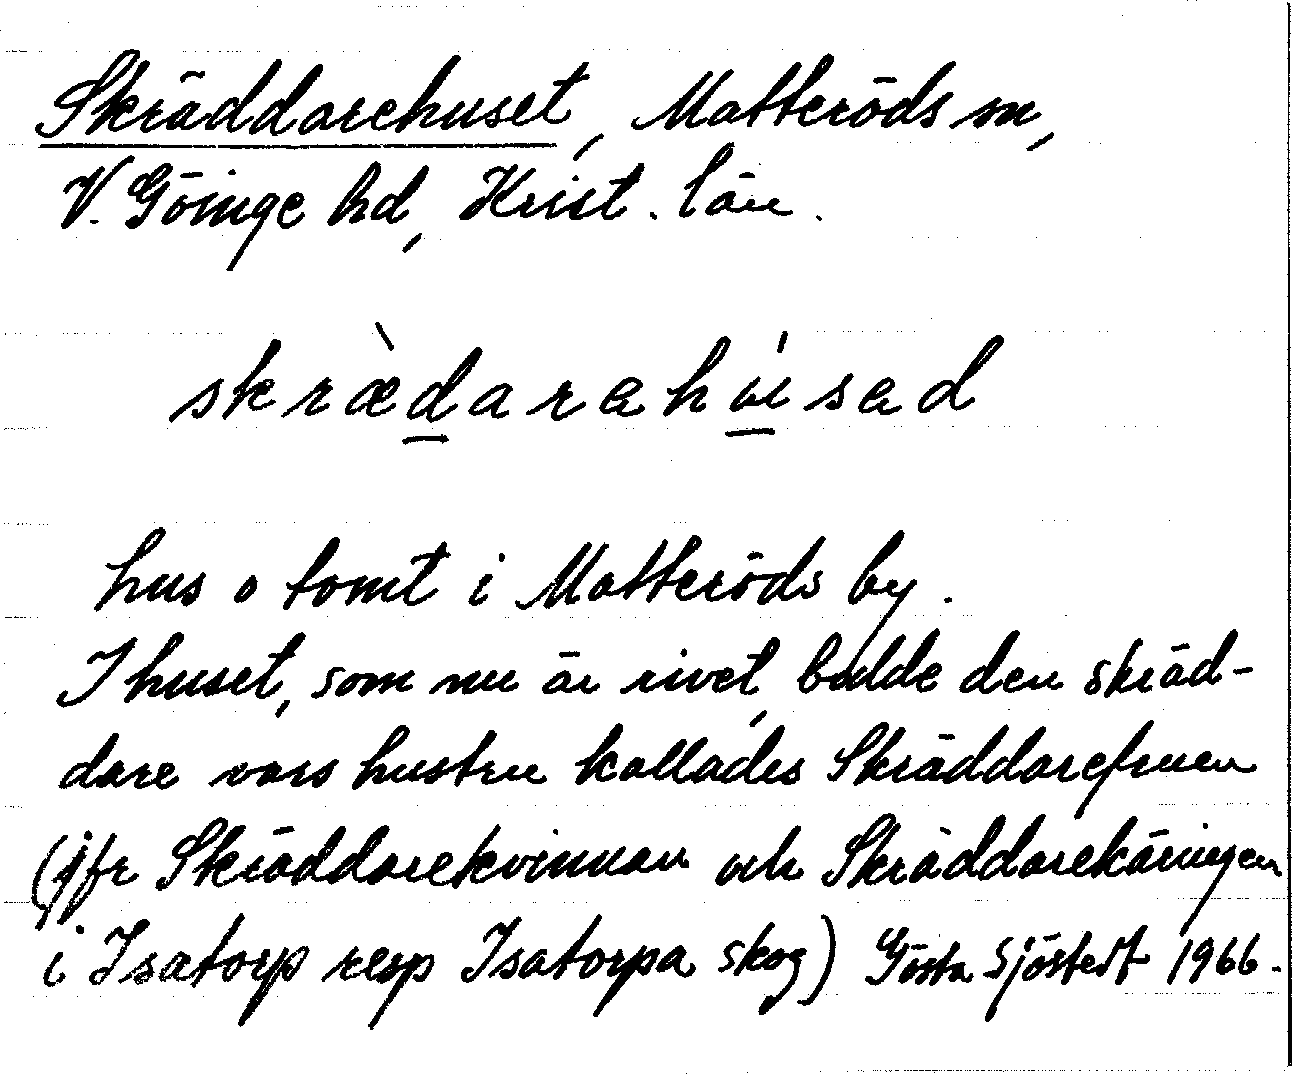 Skräddarehuset, Matteröds sn,
V. Göinge hd, Krist. län.
skræ̀darahu̇́sad
hus o tomt i Matteröds by.
I huset, som nu är rivet, bodde den skräd-
dare vars hustru kallades Skräddarefruen
(jfr Skräddarekvinnan och Skräddarekäringen
i Isatorp resp Isatorpa skog) Gösta Sjöstedt 1966.